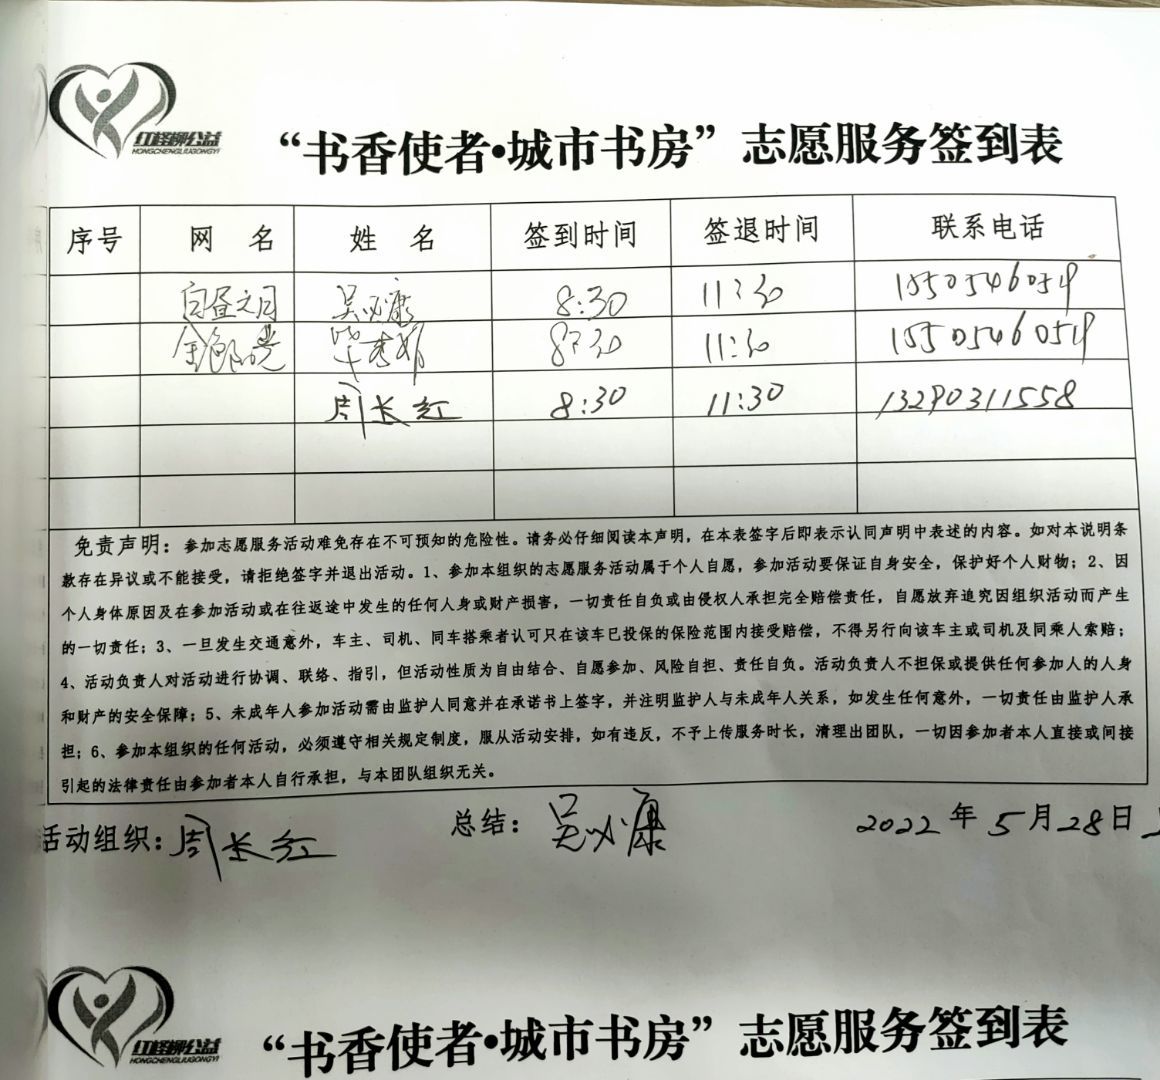 红柽柳公益
HONGCHENGLIUGONGYI
“书香使者•城市书房”志愿服务签到表
序号 网 名 姓 名 签到时间 签退时间 联系电话
白昼之月 吴必康 8:30 11:30 15505460519
8:30 11:30 15505460519
周长红 8:30 11:30 13290311558
免责声明：参加志愿服务活动难免存在不可预知的危险性。请务必仔细阅读本声明，在本表签字后即表示认同声明中表述的内容。如对本说明条
款存在异议或不能接受，请拒绝签字并退出活动。1、参加本组织的志愿服务活动属于个人自愿，参加活动要保证自身安全，保护好个人财物；2、因
个人身体原因及在参加活动或在往返途中发生的任何人身或财产损害，一切责任自负或由侵权人承担完全赔偿责任，自愿放弃追究因组织活动而产生
的一切责任；3、一旦发生交通意外，车主、司机、同车搭乘者认可只在该车已投保的保险范围内接受赔偿，不得另行向该车主或司机及同乘人索赔；
4、活动负责人对活动进行协调、联络、指引，但活动性质为自由结合、自愿参加、风险自担、责任自负。活动负责人不担保或提供任何参加人的人身
和财产的安全保障；5、未成年人参加活动需由监护人同意并在承诺书上签字，并注明监护人与未成年人关系，如发生任何意外，一切责任由监护人承
担；6、参加本组织的任何活动，必须遵守相关规定制度，服从活动安排，如有违反，不予上传服务时长，清理出团队，一切因参加者本人直接或间接
引起的法律责任由参加者本人自行承担，与本团队组织无关。
活动组织：周长红 总结：吴必康 2022年5月28日
红柽柳公益
HONGCHENGLIUGONGYI
“书香使者•城市书房”志愿服务签到表